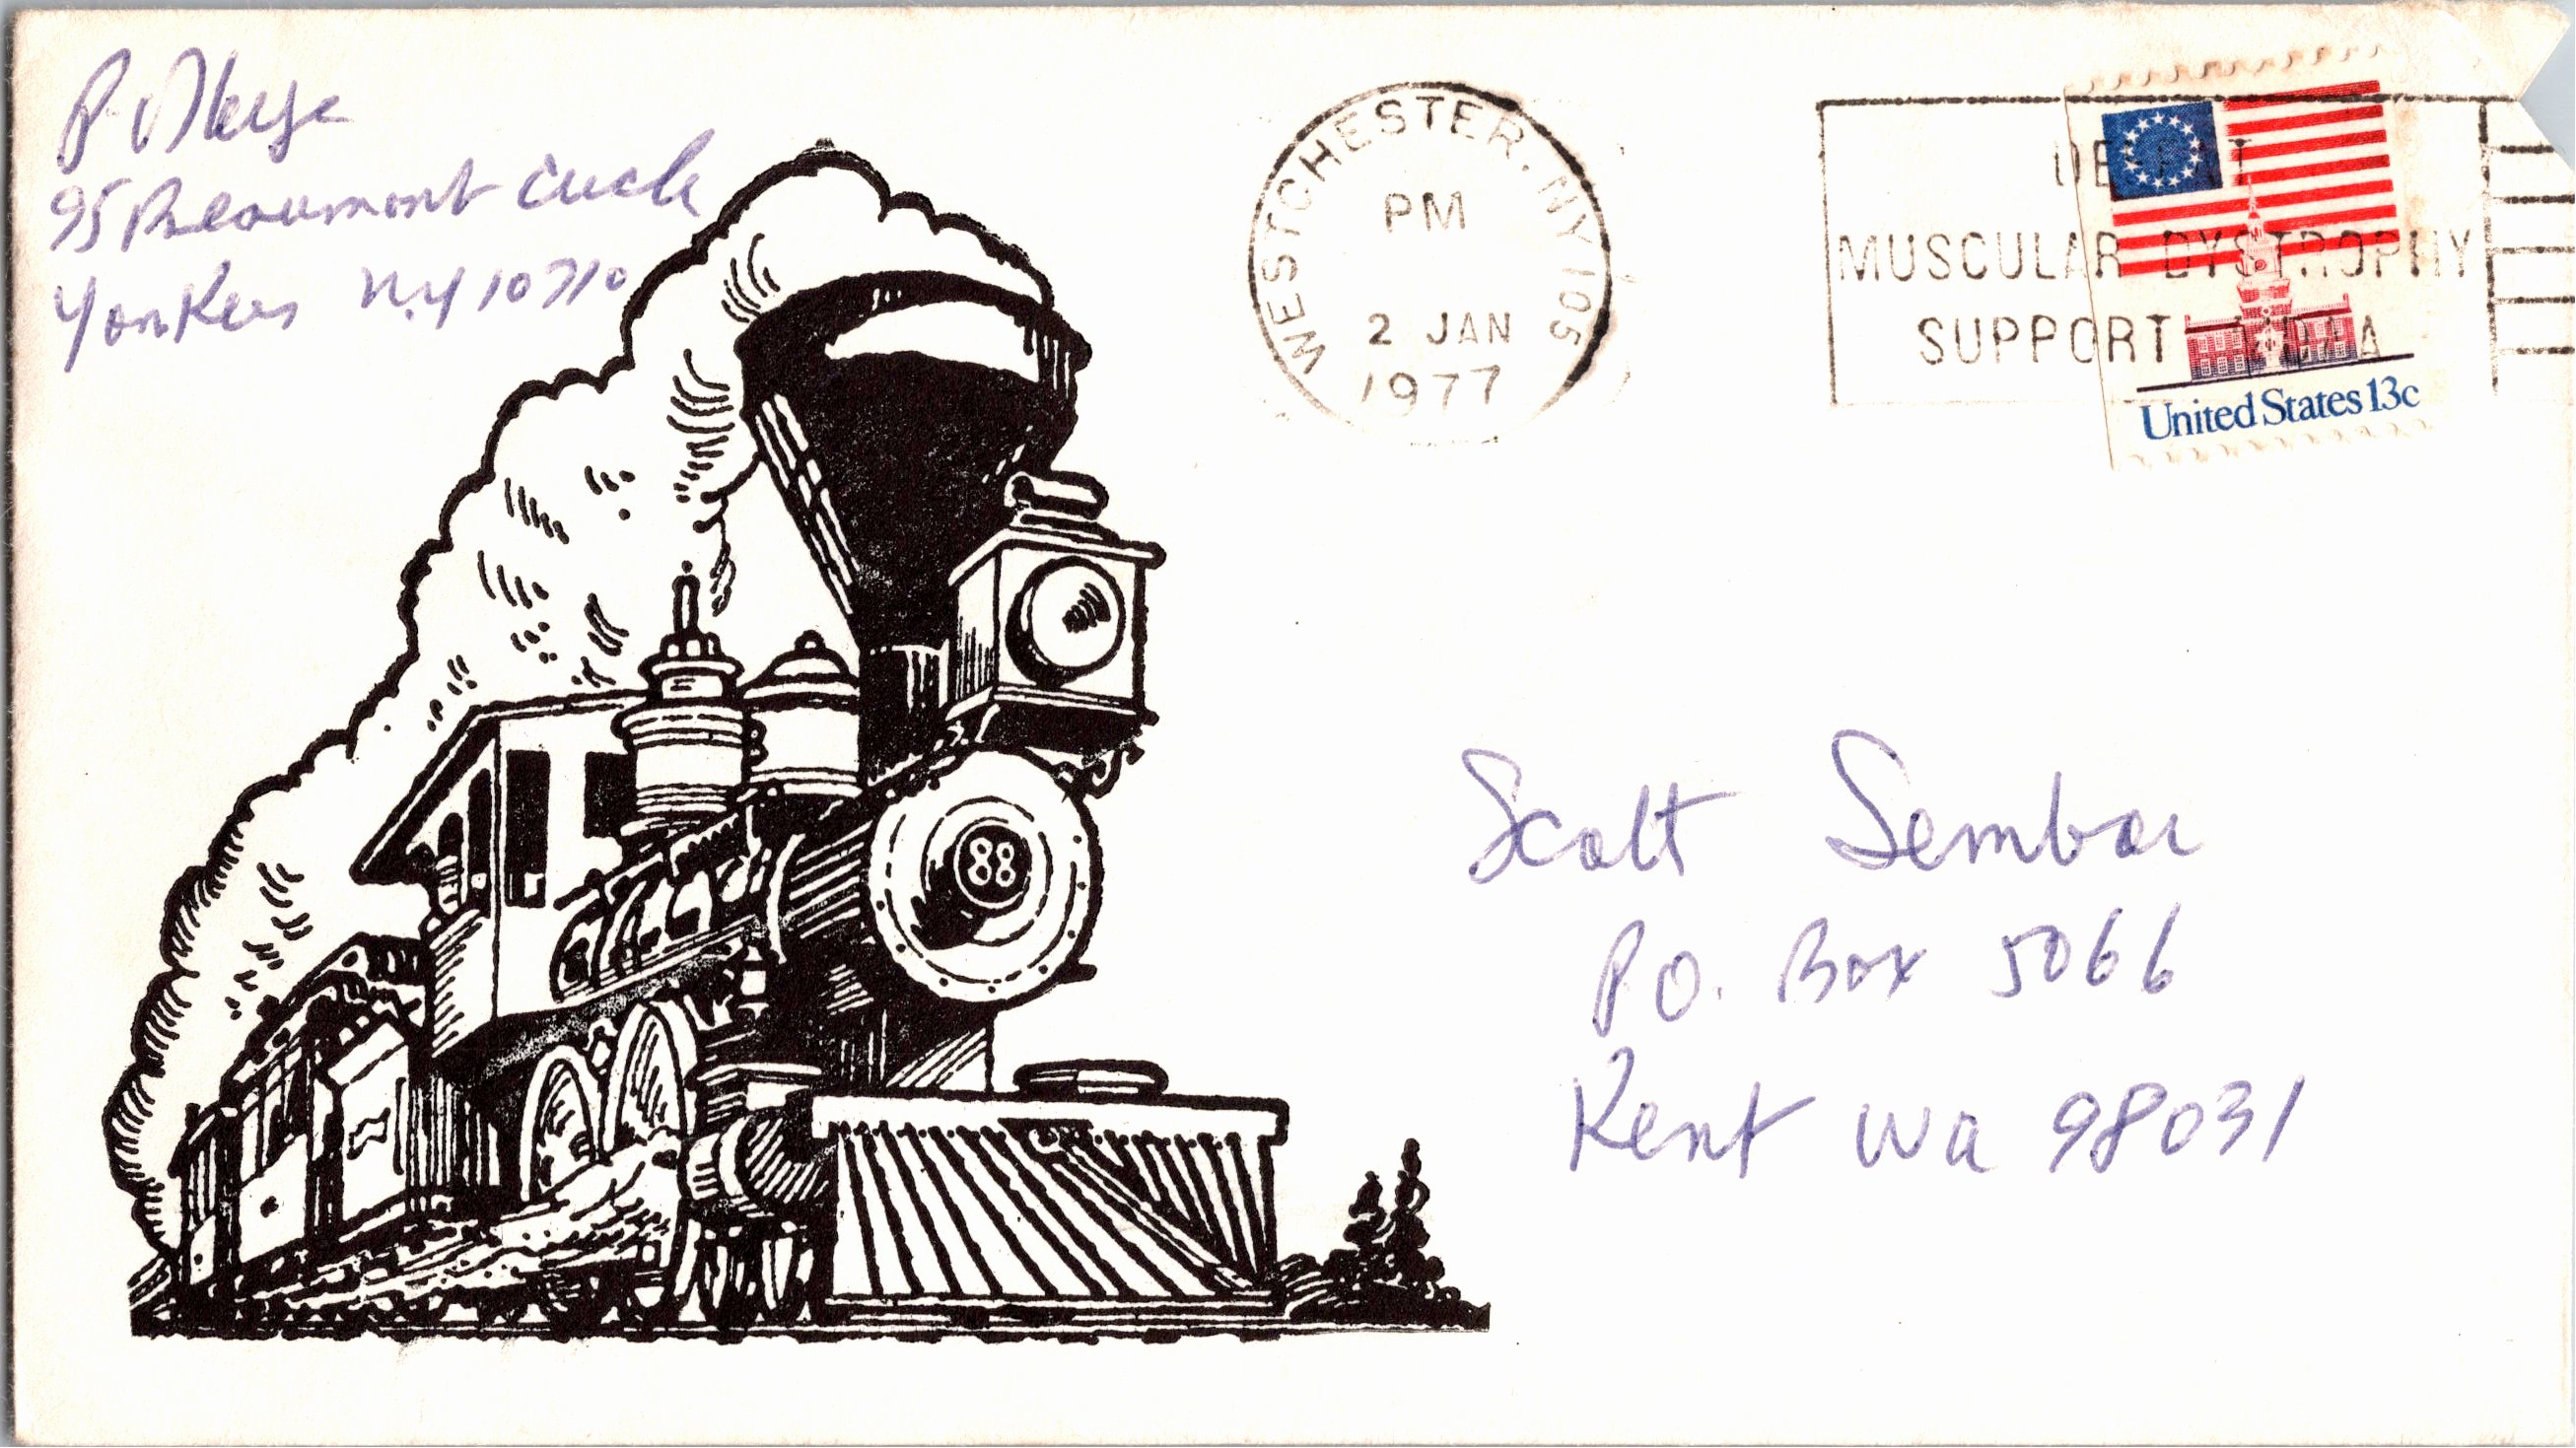 95 Beaumont Circle
Yonkers N.Y 10710
WESTCHESTER, NY 105
PM
2 JAN
1977
MUSCULAR DYSTROPHY
SUPPORT MDAA
United States 13c
88
Scott Sembar
P.O. Box 5066
Kent Wa 98031